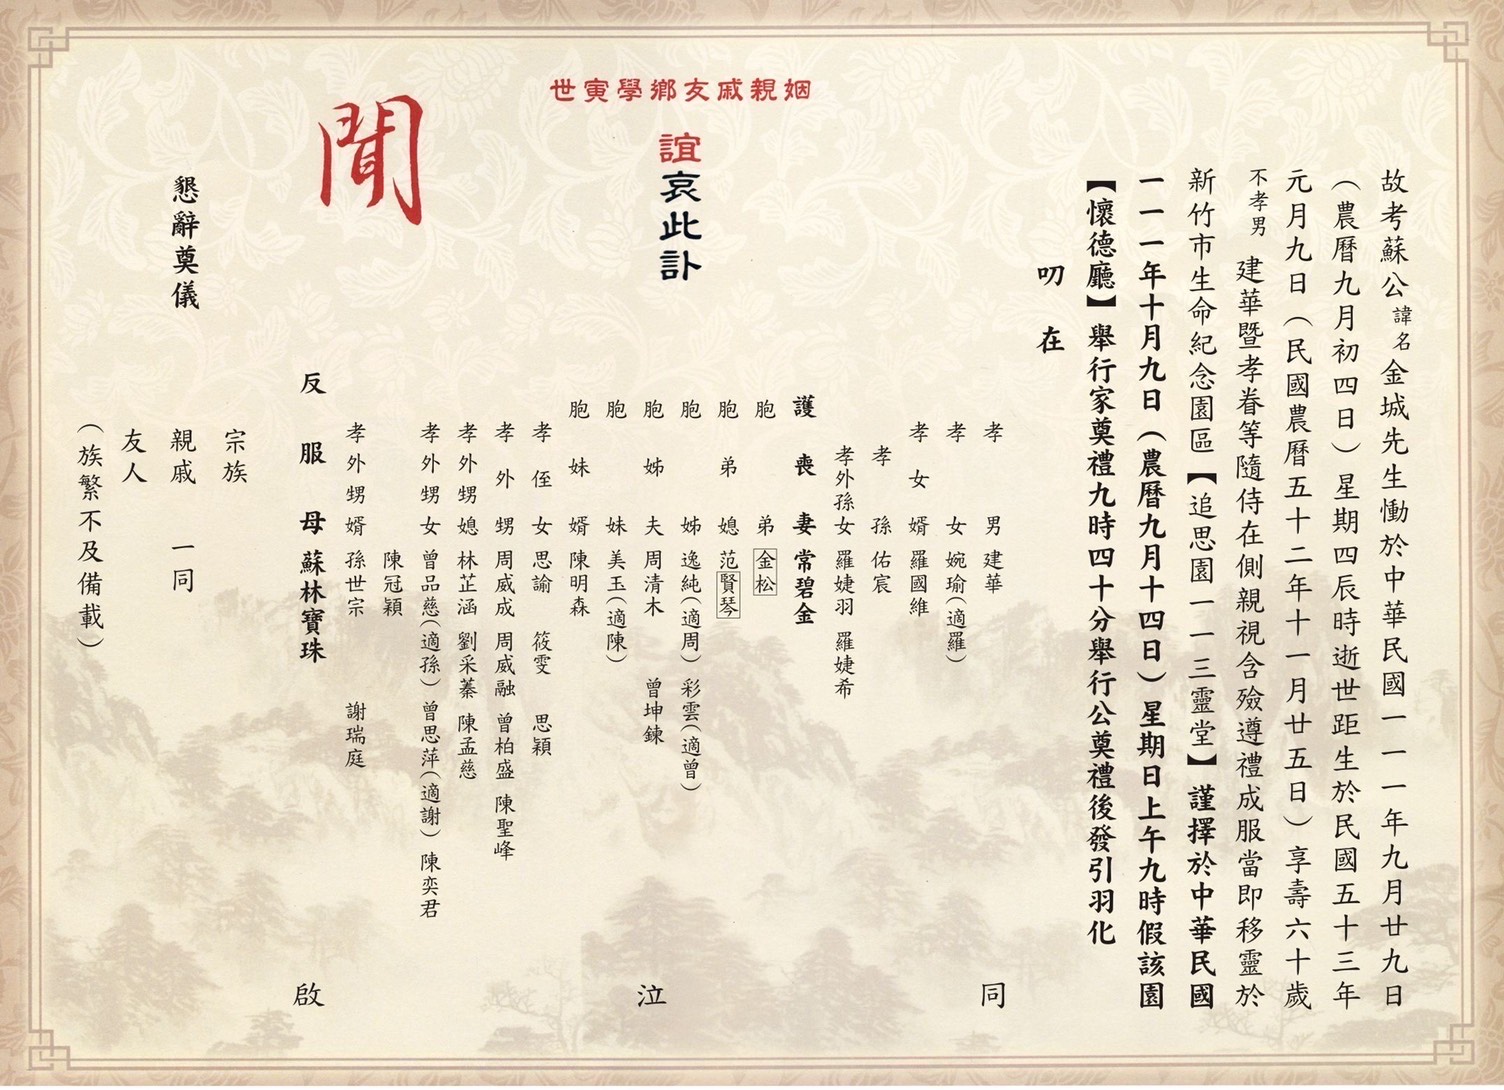 故考蘇公諱名金城先生慟於中華民國一一一年九月廿九日
（農曆九月初四日）星期四辰時逝世距生於民國五十三年
元月九日（民國農曆五十二年十一月廿五日）享壽六十歲
不孝男 建華暨孝眷等隨侍在側親視含殮遵禮成服當即移靈於
新竹市生命紀念園區【追思園一一三靈堂】謹擇於中華民國
一一一年十月九日（農曆九月十四日）星期日上午九時假該園
【懷德廳】舉行家奠禮九時四十分舉行公奠禮後發引羽化
叨在
姻親戚友鄉學寅世
誼哀此訃
聞
孝男 建華
孝女 婉瑜（適羅）
孝女婿 羅國維
孝孫 佑宸
孝外孫女 羅婕羽 羅婕希
護喪妻 常碧金
胞弟 金松
胞弟媳 范賢琴
胞姊 逸純（適周） 彩雲（適曾）
胞姊夫 周清木 曾坤鍊
胞妹 美玉（適陳）
胞妹婿 陳明森
孝侄女 思諭 筱雯 思穎
孝外甥 周威成 周威融 曾柏盛 陳聖峰
孝外甥媳 林芷涵 劉采蓁 陳孟慈
孝外甥女 曾品慈（適孫） 曾思萍（適謝） 陳奕君
陳冠穎
孝外甥婿 孫世宗 謝瑞庭
反服母 蘇林寶珠
同
泣
啟
宗族
親戚 一同
友人
（族繁不及備載）
懇辭奠儀